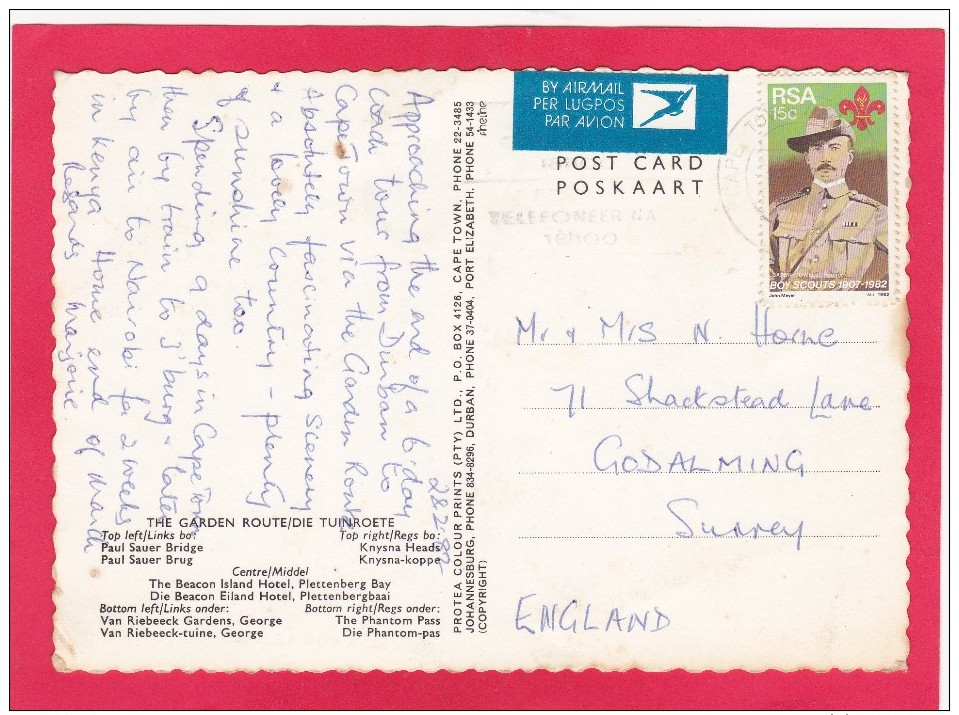 28.2.82
Approaching the end of a 6 day
coach tour from Durban to
Cape Town via the Garden Route
Absolutely fascinating scenery
& a lovely country - plenty
of sunshine too.
Spending 9 days in Cape Town
then by train to J'burg & later
by air to Nairobi for 2 weeks
in Kenya. Home end of March
Regards Marjorie.
THE GARDEN ROUTE/DIE TUINROETE
Top left/Links bo: Top right/Regs bo:
Paul Sauer Bridge Knysna Heads
Paul Sauer Brug Knysna-koppe
Centre/Middel
The Beacon Island Hotel, Plettenberg Bay
Die Beacon Eiland Hotel, Plettenbergbaai
Bottom left/Links onder: Bottom right/Regs onder:
Van Riebeeck Gardens, George The Phantom Pass
Van Riebeeck-tuine, George Die Phantom-pas
PROTEA COLOUR PRINTS (PTY) LTD., P.O. BOX 4126, CAPE TOWN, PHONE 22-3485
JOHANNESBURG, PHONE 834-8296, DURBAN, PHONE 37-0404, PORT ELIZABETH, PHONE 54-1433
(COPYRIGHT)
BY AIRMAIL
PER LUGPOS
PAR AVION
POST CARD
POSKAART
TELEFONEER NA
18H00
RSA
15c
BOY SCOUTS 1907-1982
John Meyer 1982
Mr & Mrs N. Horne
71 Shackstead Lane
GODALMING
Surrey
ENGLAND